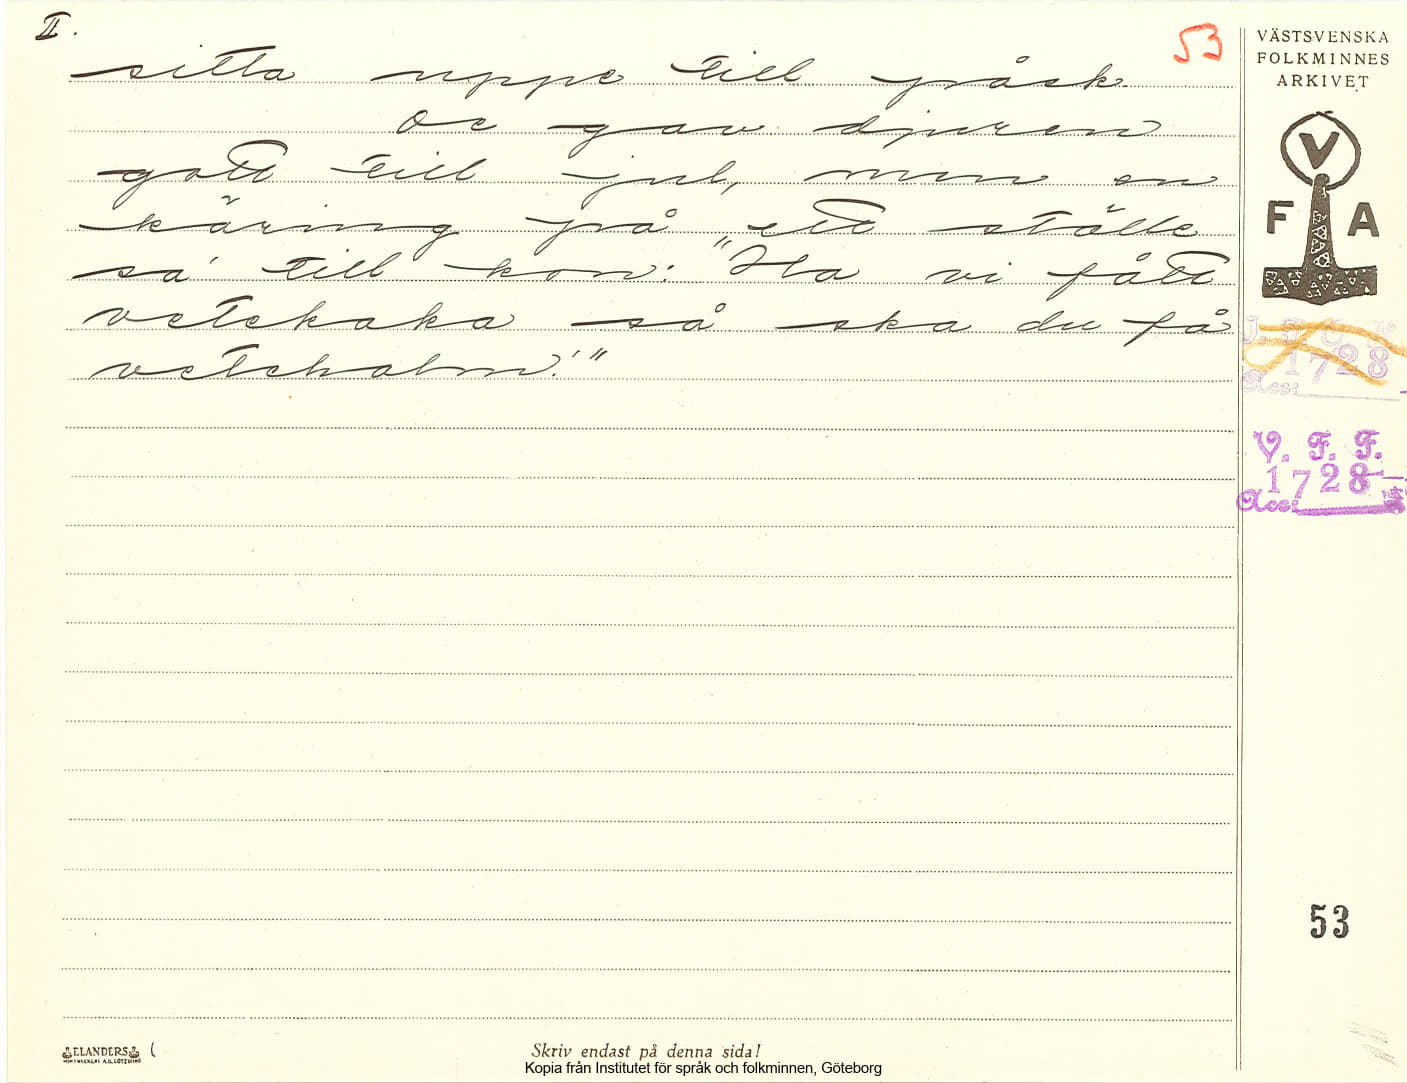 II.
53
sitta uppe till påsk.
De gav djuren
gott till jul, men en
käring på ett ställe
sa' till kon: "Ha vi fått
vetekaka så ska du få
vetehalm!"
VÄSTSVENSKA
FOLKMINNES
ARKIVET
V
F A
1728
Acc:
V. F. F.
1728
Acc:
53
ELANDERS
Skriv endast på denna sida!
Kopia från Institutet för språk och folkminnen, Göteborg